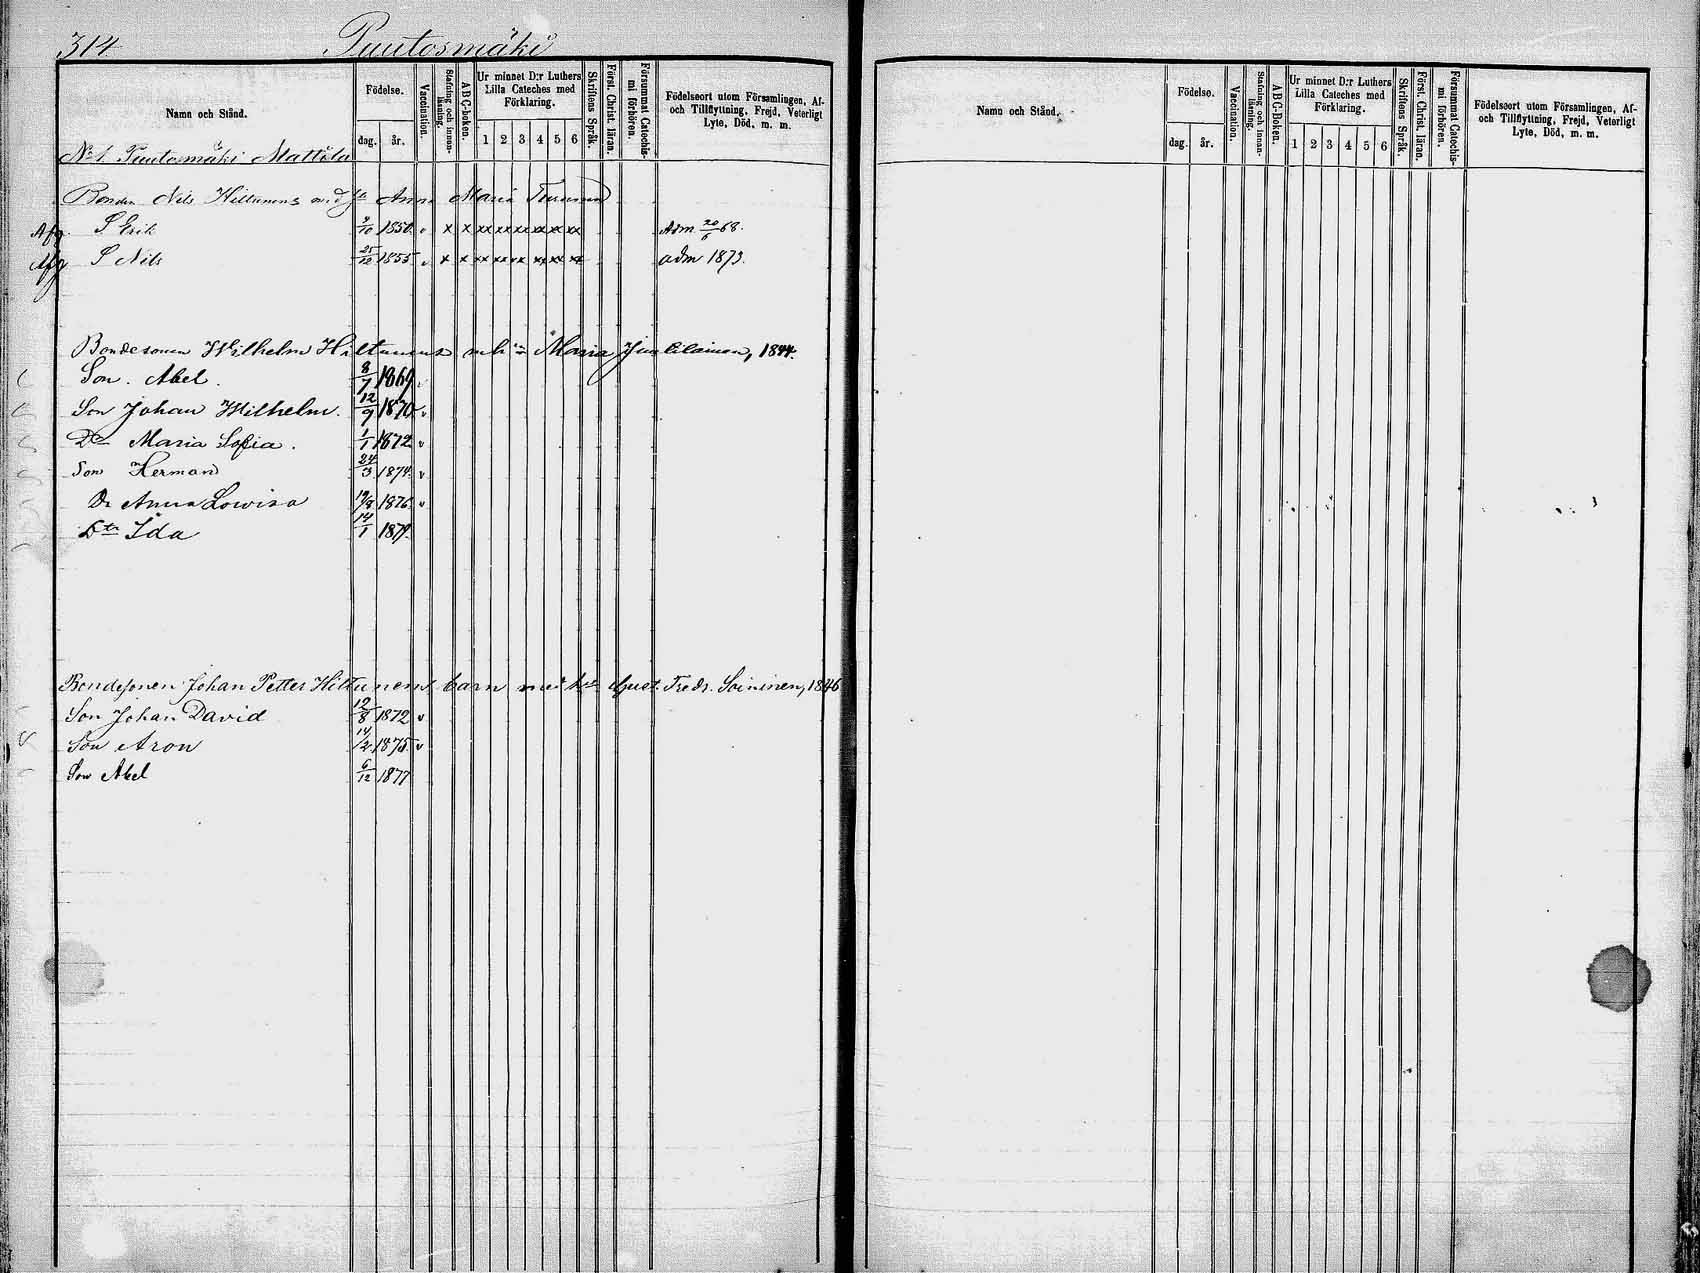 314 Puutosmäki
Namn och Stånd. Födelse. dag. år. Vaccination. Stafning och innanläsning. ABC-boken. Ur minnet D:r Luthers Lilla Cateches med Förklaring. 1 2 3 4 5 6 Skriftens Språk. Först. Christ. läran. Försummat Catechismi förhören. Födelseort utom Församlingen, Af- och Tillflyttning, Frejd, Veterligt Lyte, Död, m. m.
No 1 Puutosmäki Mattila
Bonden Nils Hiltunens med Anna Maria
Afg S Erik 9/10 1850. v x x xx xx xx xx xx xx Adm 20/6 68.
Afg S Nils 25/12 1855 v x x xx xx xx xx xx xx adm 1873.
Bondesonen Wilhelm Hiltunens m h:u Maria Juutilainen, 1844.
Son. Abel. 8/7 1869 v
Son Johan Wilhelm. 12/9 1870 v
Dr Maria Sofia. 1/1 1872 v
Son Herman 24/3 1874. v
Dr Anna Lovisa 19/9 1876. v
Dtr Ida 14/1 1879.
Bondesonen Johan Petter Hiltunens barn med h Gust. Fredr. Soininen, 1846
Son Johan David 12/8 1872 v
Son Aron 14/2 1875. v
Son Abel 6/12 1877
Namn och Stånd. Födelse. dag. år. Vaccination. Stafning och innanläsning. ABC-Boken. Ur minnet D:r Luthers Lilla Cateches med Förklaring. 1 2 3 4 5 6 Skriftens Språk. Först. Christ. läran. Försummat Catechismi förhören. Födelseort utom Församlingen, Af- och Tillflyttning, Frejd, Veterligt Lyte, Död, m. m.